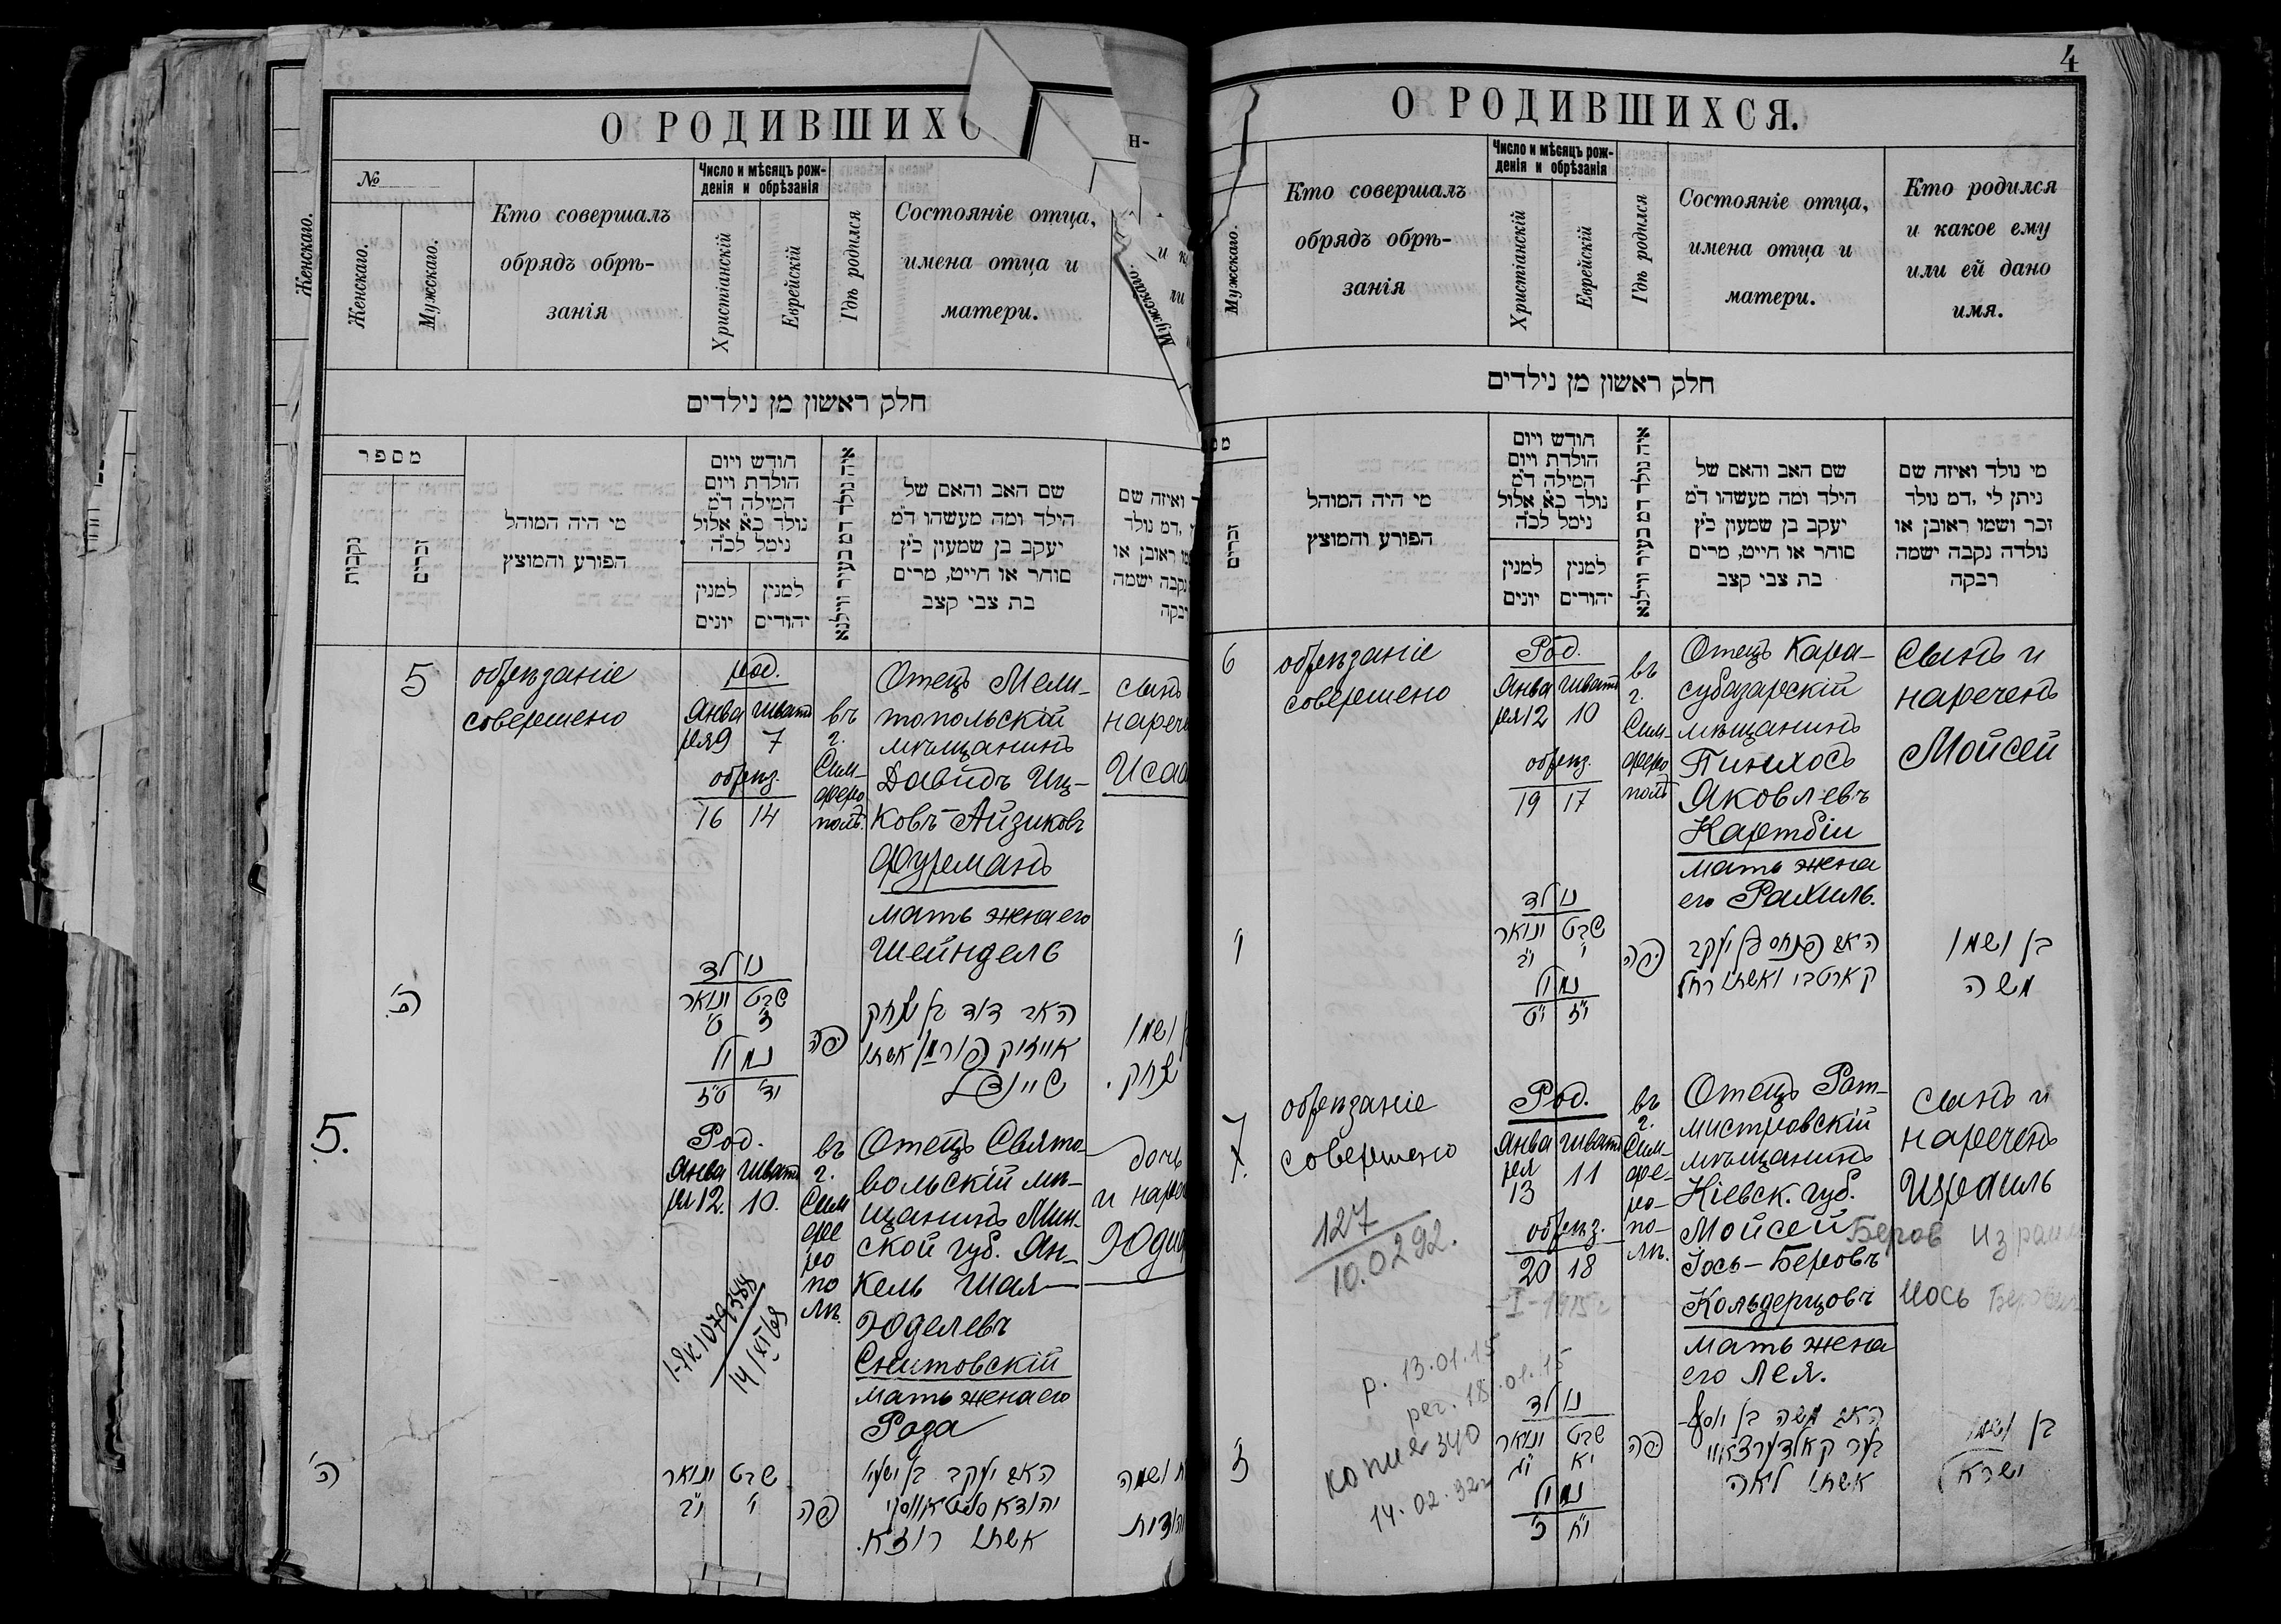 О РОДИВШИХС
№
Женскаго.
Женскаго.
Мужскаго.
Кто совершалъ
обрядъ обрѣ-
занія
Число и мѣсяцъ рож-
денія и обрѣзанія
Христіанскій
Еврейскій
Гдѣ родился
Состояніе отца,
имена отца и
матери.
Мужскаго.
חלק ראשון מן נילדים
מספר
נקבות
זכרים
מי היה המוהל
הפורע והמוצץ
חודש ויום
הולדת ויום
המילה ד״מ
נולד כ״א אלול
נימל לכ״ה
למנין
יונים
למנין
יהודים
איה נולד דמ בעיר ווילנא
שם האב והאם של
הילד ומה מעשהו ד״מ
יעקב בן שמעון כ״ץ
סוחר או חייט, מרים
בת צבי קצב
ואיזה שם
דמ נולד
ראובן או
נקבה ישמה
5
обрѣзаніе
совершено
род.
Янва
ря 9
Шватъ
7
обрѣз.
16
14
въ
г.
Сим-
феро
полѣ.
Отецъ Мели-
топольскій
мѣщанинъ
Давидъ Иц-
ковъ Айзиковъ
Фурманъ
мать жена его
Шейндель
сынъ
нарече
Исаа
ה׳
נולד
ינואר
ט׳
שבט
ז׳
נמול
ט״ז
י״ד
פה
האב דוד בן יצחק
אייזיק פורמן אשתו
שיינדל
ושמו
יצחק.
5.
Род.
Янва
ря 12.
Шватъ
10.
въ
г.
Сим
фе
ро
по
лѣ.
Отецъ Свято-
вольскій мѣ-
щанинъ Мин-
ской губ. Ян-
кель Шая
Юделевъ
Снитовскій
мать жена его
Роза
дочь
и наре
Юди
14/XI 69
ה׳
ינואר
י״ב
שבט
י׳
פה
האב יעקב בן ישעי׳
יהודא
אשתו רוזא.
ושמה
יהודית
4
О РОДИВШИХСЯ.
Мужскаго.
Кто совершалъ
обрядъ обрѣ-
занія
Число и мѣсяцъ рож-
денія и обрѣзанія
Христіанскій
Еврейскій
Гдѣ родился
Состояніе отца,
имена отца и
матери.
Кто родился
и какое ему
или ей дано
имя.
חלק ראשון מן נילדים
זכרים
מי היה המוהל
הפורע והמוצץ
חודש ויום
הולדת ויום
המילה ד״מ
נולד כ״א אלול
נימל לכ״ה
למנין
יונים
למנין
יהודים
איה נולד דמ בעיר ווילנא
שם האב והאם של
הילד ומה מעשהו ד״מ
יעקב בן שמעון כ״ץ
סוחר או חייט, מרים
בת צבי קצב
מי נולד ואיזה שם
ניתן לי ,דמ נולד
זכר ושמו ראובן או
נולדה נקבה ישמה
רבקה
6
обрѣзаніе
совершено
Род.
Янва
ря 12
Шватъ
10
обрѣз.
19
17
въ
г.
Сим-
феро
полѣ
Отецъ Кара-
субазарскій
мѣщанинъ
Пинхосъ
Яковлевъ
Картбіи
мать жена
его Рахиль.
Сынъ и
нареченъ
Мойсей
ו׳
נולד
ינואר
י״ב
שבט
י׳
נמול
י״ט
י״ז
פה
האב פנחס בן יעקב
קארטבי ואשתו רחל
בן ושמו
משה
7
обрѣзаніе
совершено
Род.
Янва
ря
13
Шватъ
11
обрѣз.
20
18
въ
г.
Сим-
фе-
ро-
по-
лѣ.
Отецъ Рот-
мистровскій
мѣщанинъ
Кіевск. губ.
Мойсей
Іось-Беровъ
Кольдерцовъ
мать жена
его Лея.
сынъ и
нареченъ
Израиль
Беров Израил
Иось Берович
127
10.02 92.
-I-1915г
р. 13.01.15
рег. 18.01.15
копия 340
14.02.92г
ז׳
נולד
ינואר
י״ג
שבט
י״א
נמול
כ׳
י״ח
פה
האב משה בן יוסף-
בער קאלדערצאוו
אשתו לאה
בן ושמו
ישראל